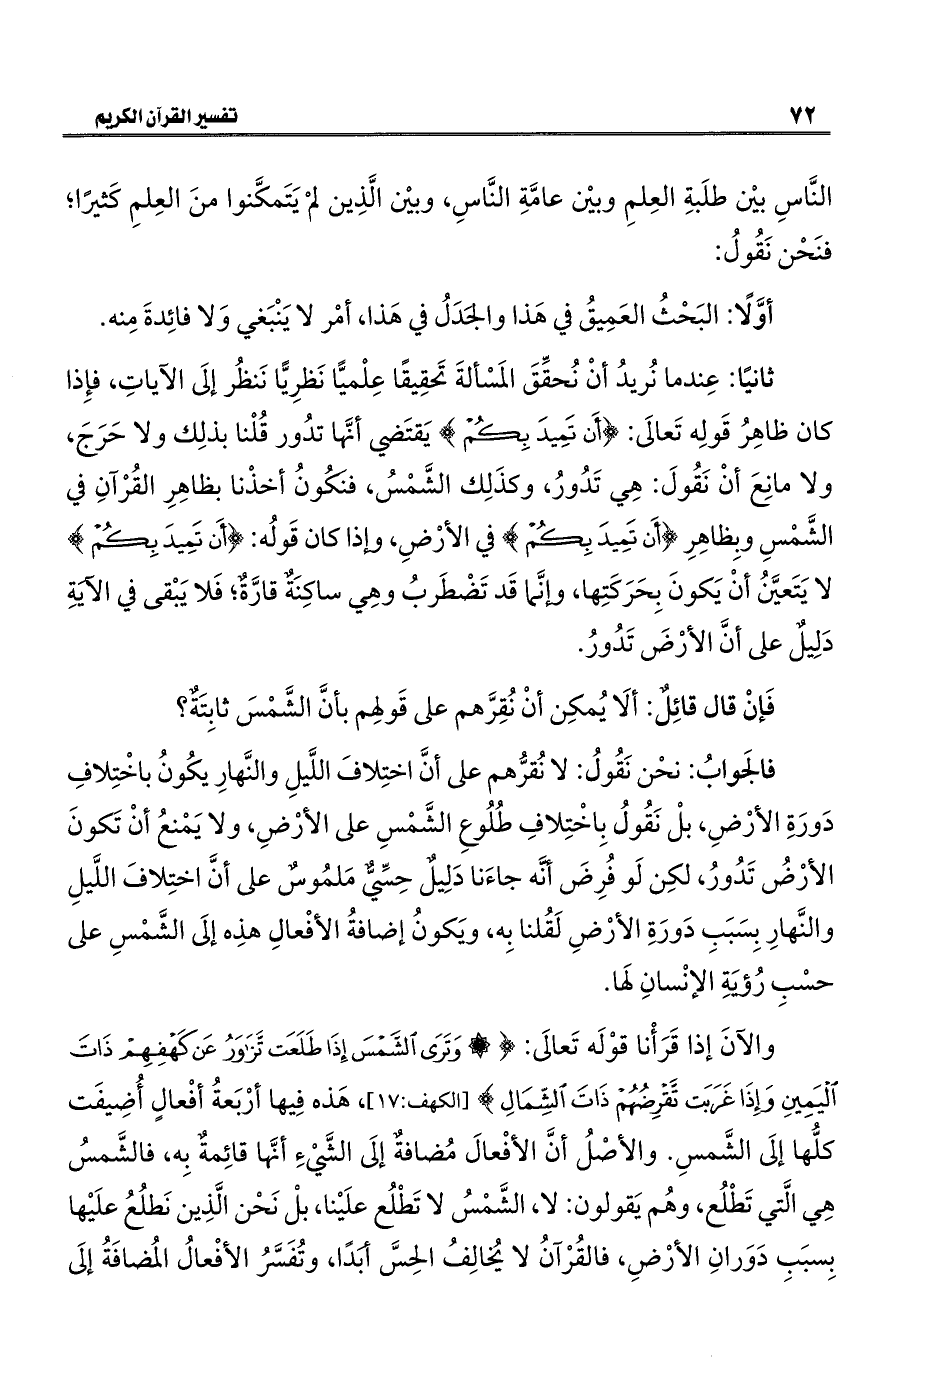 ٧٢ تفسير القرآن الكريم
النَّاسِ بيْن طلَبةِ العِلمِ وبيْن عامَّةِ النَّاسِ، وبيْن الَّذِين لمْ يَتَمكَّنوا منَ العِلمِ كَثيرًا؛
فنَحْن نَقُولُ:
أوَّلًا: البَحْثُ العَمِيقُ في هَذا والجَدَلُ في هَذا، أمْر لا يَنْبَغي وَلا فائِدةَ مِنه.
ثانيًا: عِندما نُريدُ أنْ نُحقِّقَ المَسْألةَ تَحقِيقًا عِلْميًّا نَظرِيًّا نَنظُر إلَى الآياتِ، فإِذا
كان ظاهِرُ قَولِه تَعالَى: ﴿أَن تَمِيدَ بِكُمْ﴾ يَقتَضي أنَّها تدُور قُلْنا بذلِك ولا حَرَجَ،
ولا مانِعَ أنْ نَقُولَ: هِي تَدُورُ، وكذَلِك الشَّمْسُ، فنَكُونُ أخذْنا بظاهِرِ القُرْآنِ في
الشَّمْسِ وبِظاهِرِ ﴿أَن تَمِيدَ بِكُمْ﴾ في الأرْضِ، وإذا كان قَولُه: ﴿أَن تَمِيدَ بِكُمْ﴾
لا يَتَعيَّنُ أنْ يَكونَ بِحَرَكَتِها، وإنَّما قَد تَضْطَرِبُ وهِي ساكِنَةٌ قارَّةٌ؛ فَلا يَبْقى في الآيَةِ
دَلِيلٌ على أنَّ الأرْضَ تَدُورُ.
فَإنْ قال قائِلٌ: ألَا يُمكِن أنْ نُقِرَّهم على قَولِهم بأنَّ الشَّمْسَ ثابِتَةٌ؟
فالجَوابُ: نحْن نَقُولُ: لا نُقرُّهم على أنَّ اختِلافَ اللَّيلِ والنَّهارِ يكُونُ باخْتِلافِ
دَورَةِ الأرْضِ، بلْ نَقُولُ بِاخْتِلافِ طُلُوعِ الشَّمْسِ على الأرْضِ، ولا يَمْنعُ أنْ تَكونَ
الأرْضُ تَدُورُ، لكِن لَو فُرِضَ أنَّه جاءَنا دَلِيلٌ حِسِّيٌّ مَلمُوسٌ على أنَّ اختِلافَ اللَّيلِ
والنَّهارِ بسَبَبِ دَورَةِ الأرْضِ لَقُلنا بِه، ويَكونُ إضافةُ الأفْعالِ هذِه إلَى الشَّمْسِ على
حسْبِ رُؤيَةِ الإنْسانِ لَها.
والآنَ إذا قرَأْنا قوْلَه تَعالَى: ﴿۞ وَتَرَى ٱلشَّمْسَ إِذَا طَلَعَت تَّزَٰوَرُ عَن كَهْفِهِمْ ذَاتَ
ٱلْيَمِينِ وَإِذَا غَرَبَت تَّقْرِضُهُمْ ذَاتَ ٱلشِّمَالِ﴾ [الكهف:١٧]، هَذه فِيها أرْبَعةُ أفْعالٍ أُضِيفَت
كلُّها إلَى الشَّمسِ. والأصْلُ أنَّ الأفْعالَ مُضافةٌ إلَى الشَّيْءِ أنَّها قائِمةٌ بِه، فالشَّمسُ
هِي الَّتي تَطْلُع، وهُم يَقولون: لا، الشَّمْسُ لا تَطْلُع علَيْنا، بلْ نَحْن الَّذِين نَطلُعُ علَيْها
بِسبَبِ دَوَرانِ الأرْضِ، فالقُرْآنُ لا يُخالِفُ الحِسَّ أبَدًا، وتُفَسَّرُ الأفْعالُ المُضافَةُ إلَى